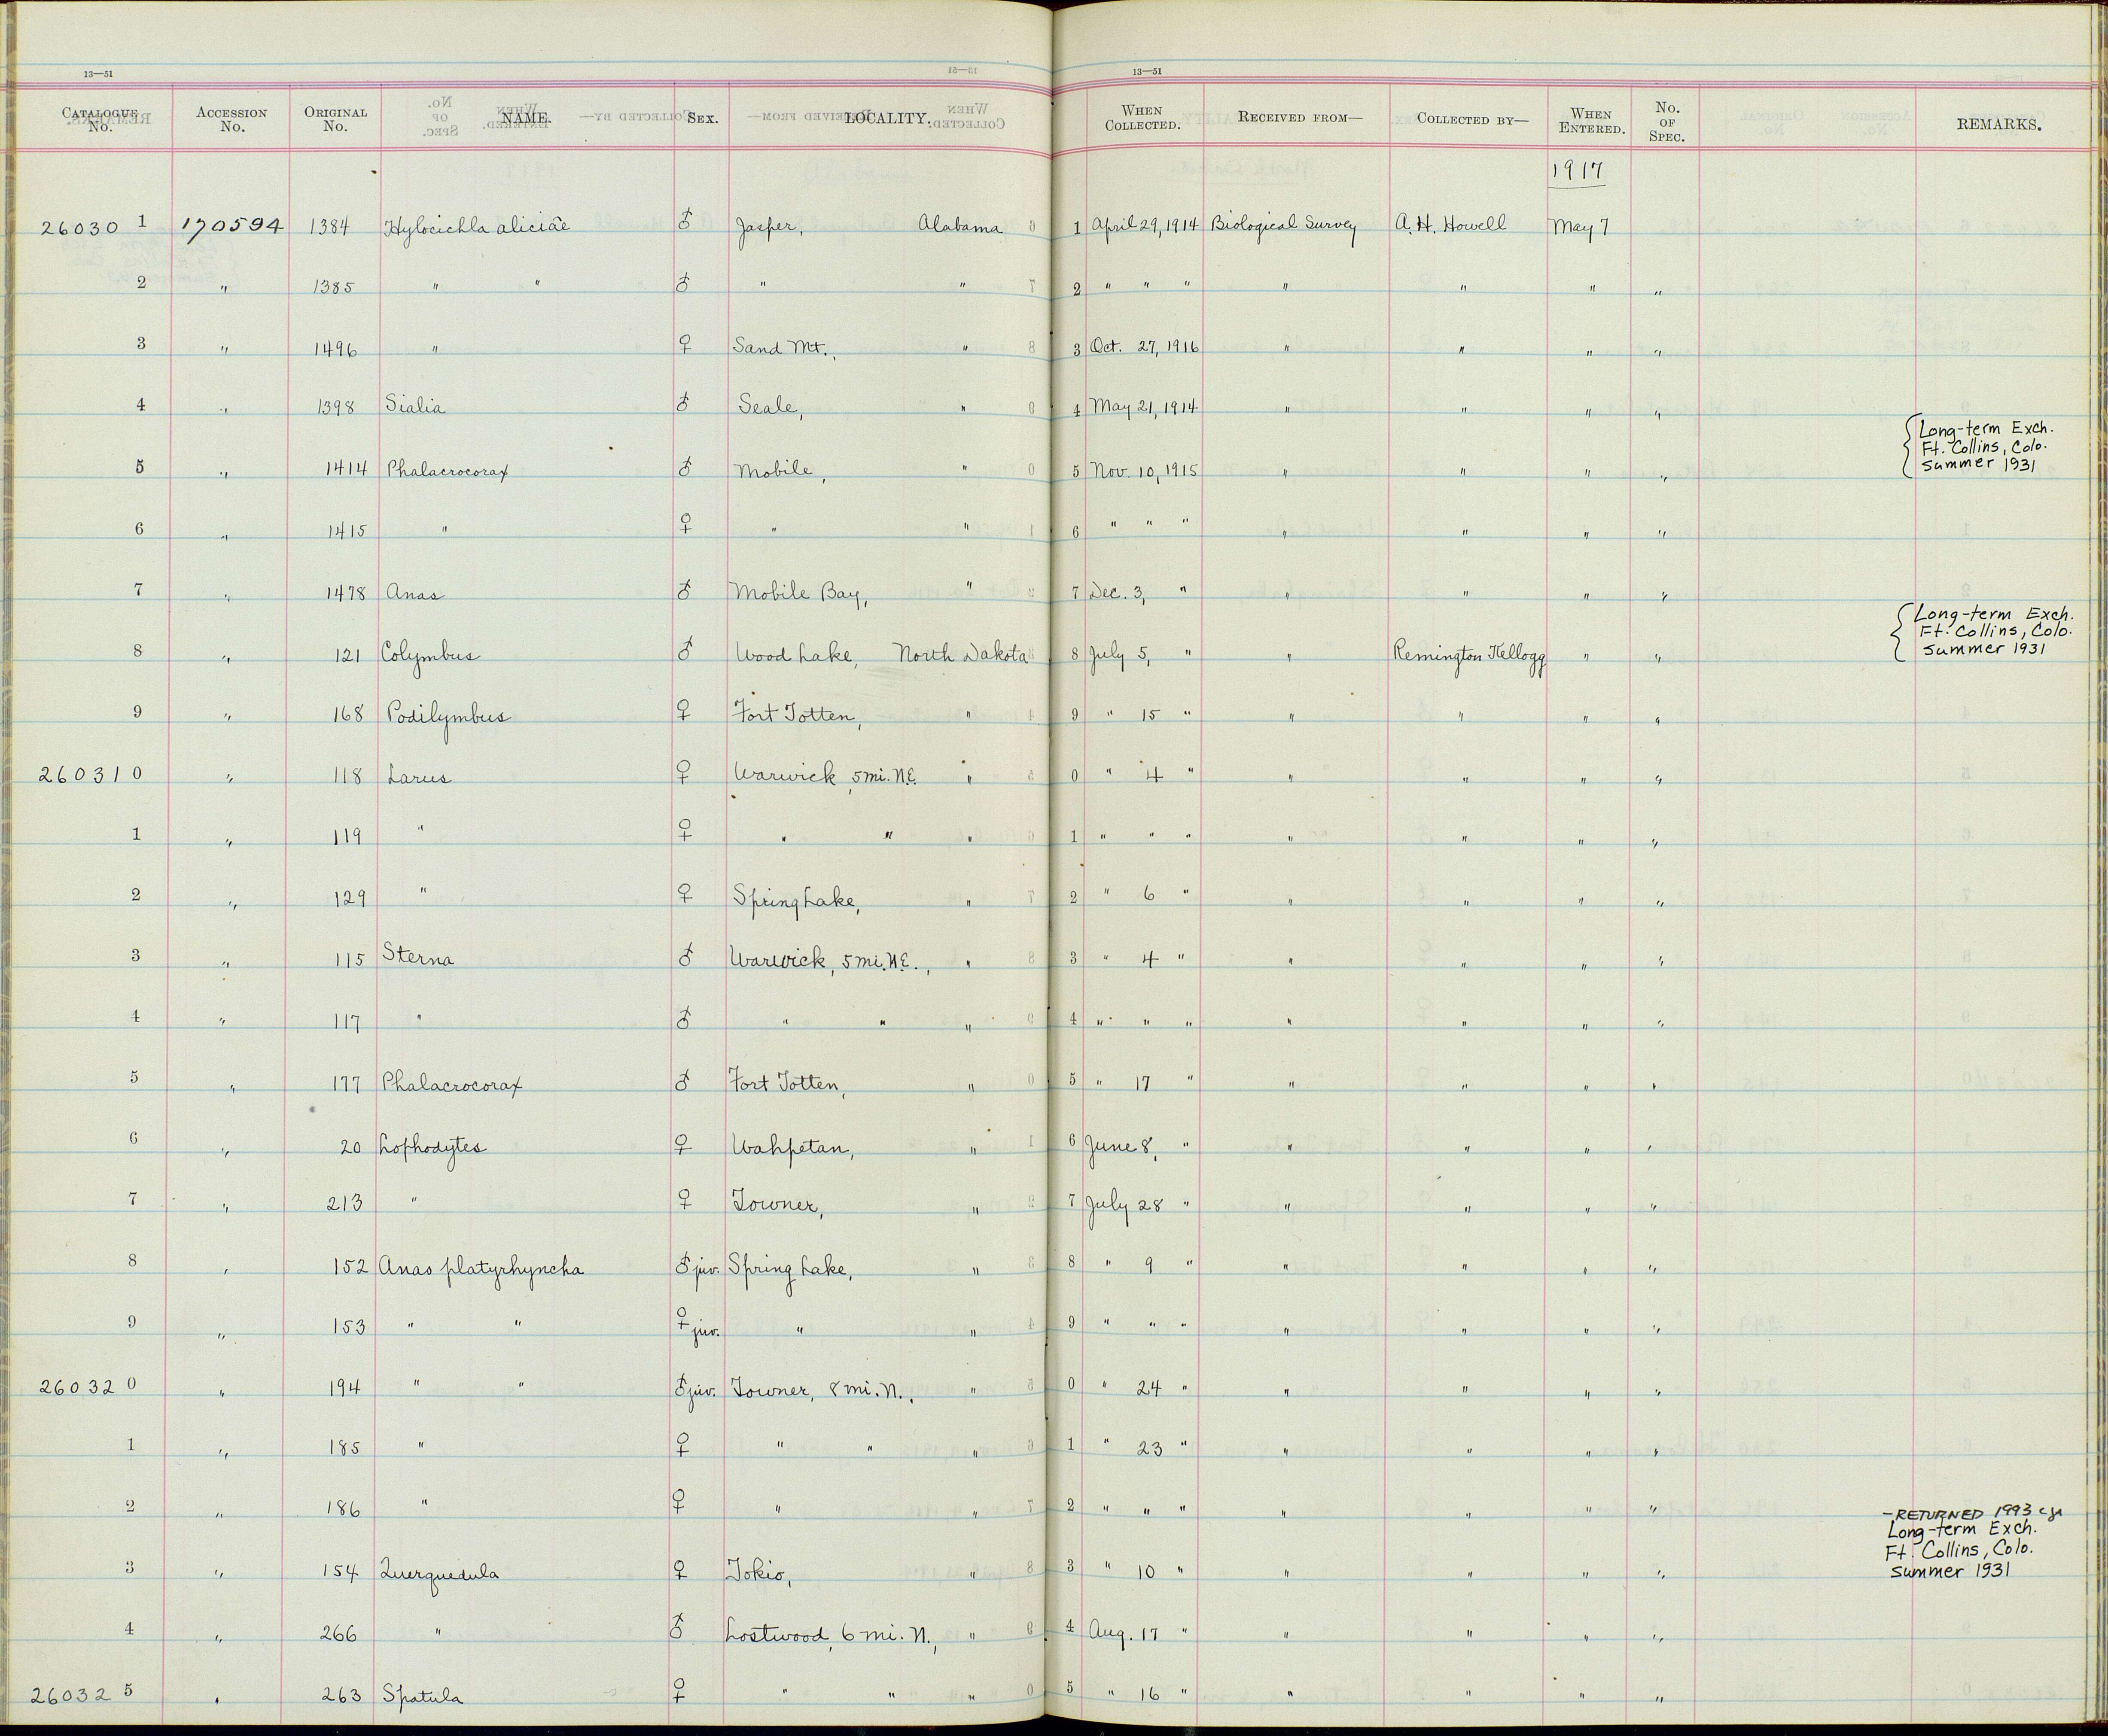 13—51 13—51
CATALOGUE No. ACCESSION No. ORIGINAL No. NAME. SEX. LOCALITY. WHEN COLLECTED. RECEIVED FROM— COLLECTED BY— WHEN ENTERED. No. OF SPEC. REMARKS.
1917
26030 1 170594 1384 Hylocichla aliciae ♂ Jasper, Alabama 1 April 29, 1914 Biological Survey A. H. Howell May 7
2 " 1385 " " ♂ " " 2 " " " " " " "
3 " 1496 " ♀ Sand Mt., " 3 Oct. 27, 1916 " " " "
4 " 1398 Sialia ♂ Seale, " 4 May 21, 1914 " " " "
5 " 1414 Phalacrocorax ♂ Mobile, " 5 Nov. 10, 1915 " " " " Long-term Exch.
Ft. Collins, Colo.
summer 1931
6 " 1415 " ♀ " " 6 " " " " " " "
7 " 1478 Anas ♂ Mobile Bay, " 7 Dec. 3, " " " " "
8 " 121 Colymbus ♂ Wood Lake, North Dakota 8 July 5, " " Remington Kellogg " " Long-term Exch.
Ft. Collins, Colo.
summer 1931
9 " 168 Podilymbus ♀ Fort Totten, " 9 " 15 " " " " "
26031 0 " 118 Larus ♀ Warwick, 5 mi. N.E. " 0 " 4 " " " " "
1 " 119 " ♀ " " " 1 " " " " " " "
2 " 129 " ♀ Spring Lake, " 2 " 6 " " " " "
3 " 115 Sterna ♂ Warwick, 5 mi. N.E., " 3 " 4 " " " " "
4 " 117 " ♂ " " " 4 " " " " " " "
5 " 177 Phalacrocorax ♂ Fort Totten, " 5 " 17 " " " " "
6 " 20 Lophodytes ♀ Wahpetan, " 6 June 8, " " " " "
7 " 213 " ♀ Towner, " 7 July 28 " " " " "
8 " 152 Anas platyrhyncha ♂ juv. Spring Lake, " 8 " 9 " " " " "
9 " 153 " " ♀ juv. " " 9 " " " " " " "
26032 0 " 194 " " ♂ juv. Towner, 8 mi. N., " 0 " 24 " " " " "
1 " 185 " ♀ " " " 1 " 23 " " " " "
2 " 186 " ♀ " " 2 " " " " " " "
3 " 154 Querquedula ♀ Tokio, " 3 " 10 " " " " " — RETURNED 1993
Long-term Exch.
Ft. Collins, Colo.
summer 1931
4 " 266 " ♂ Lostwood, 6 mi. N., " 4 Aug. 17 " " " " "
26032 5 " 263 Spatula ♀ " " " 5 " 16 " " " " "